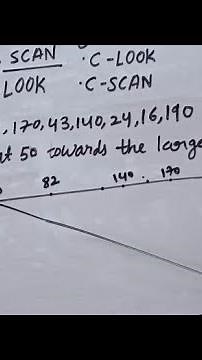 SCAN · C-LOOK
LOOK · C-SCAN
, 170, 43, 140, 24, 16, 190
at 50 towards the large
82 140 170